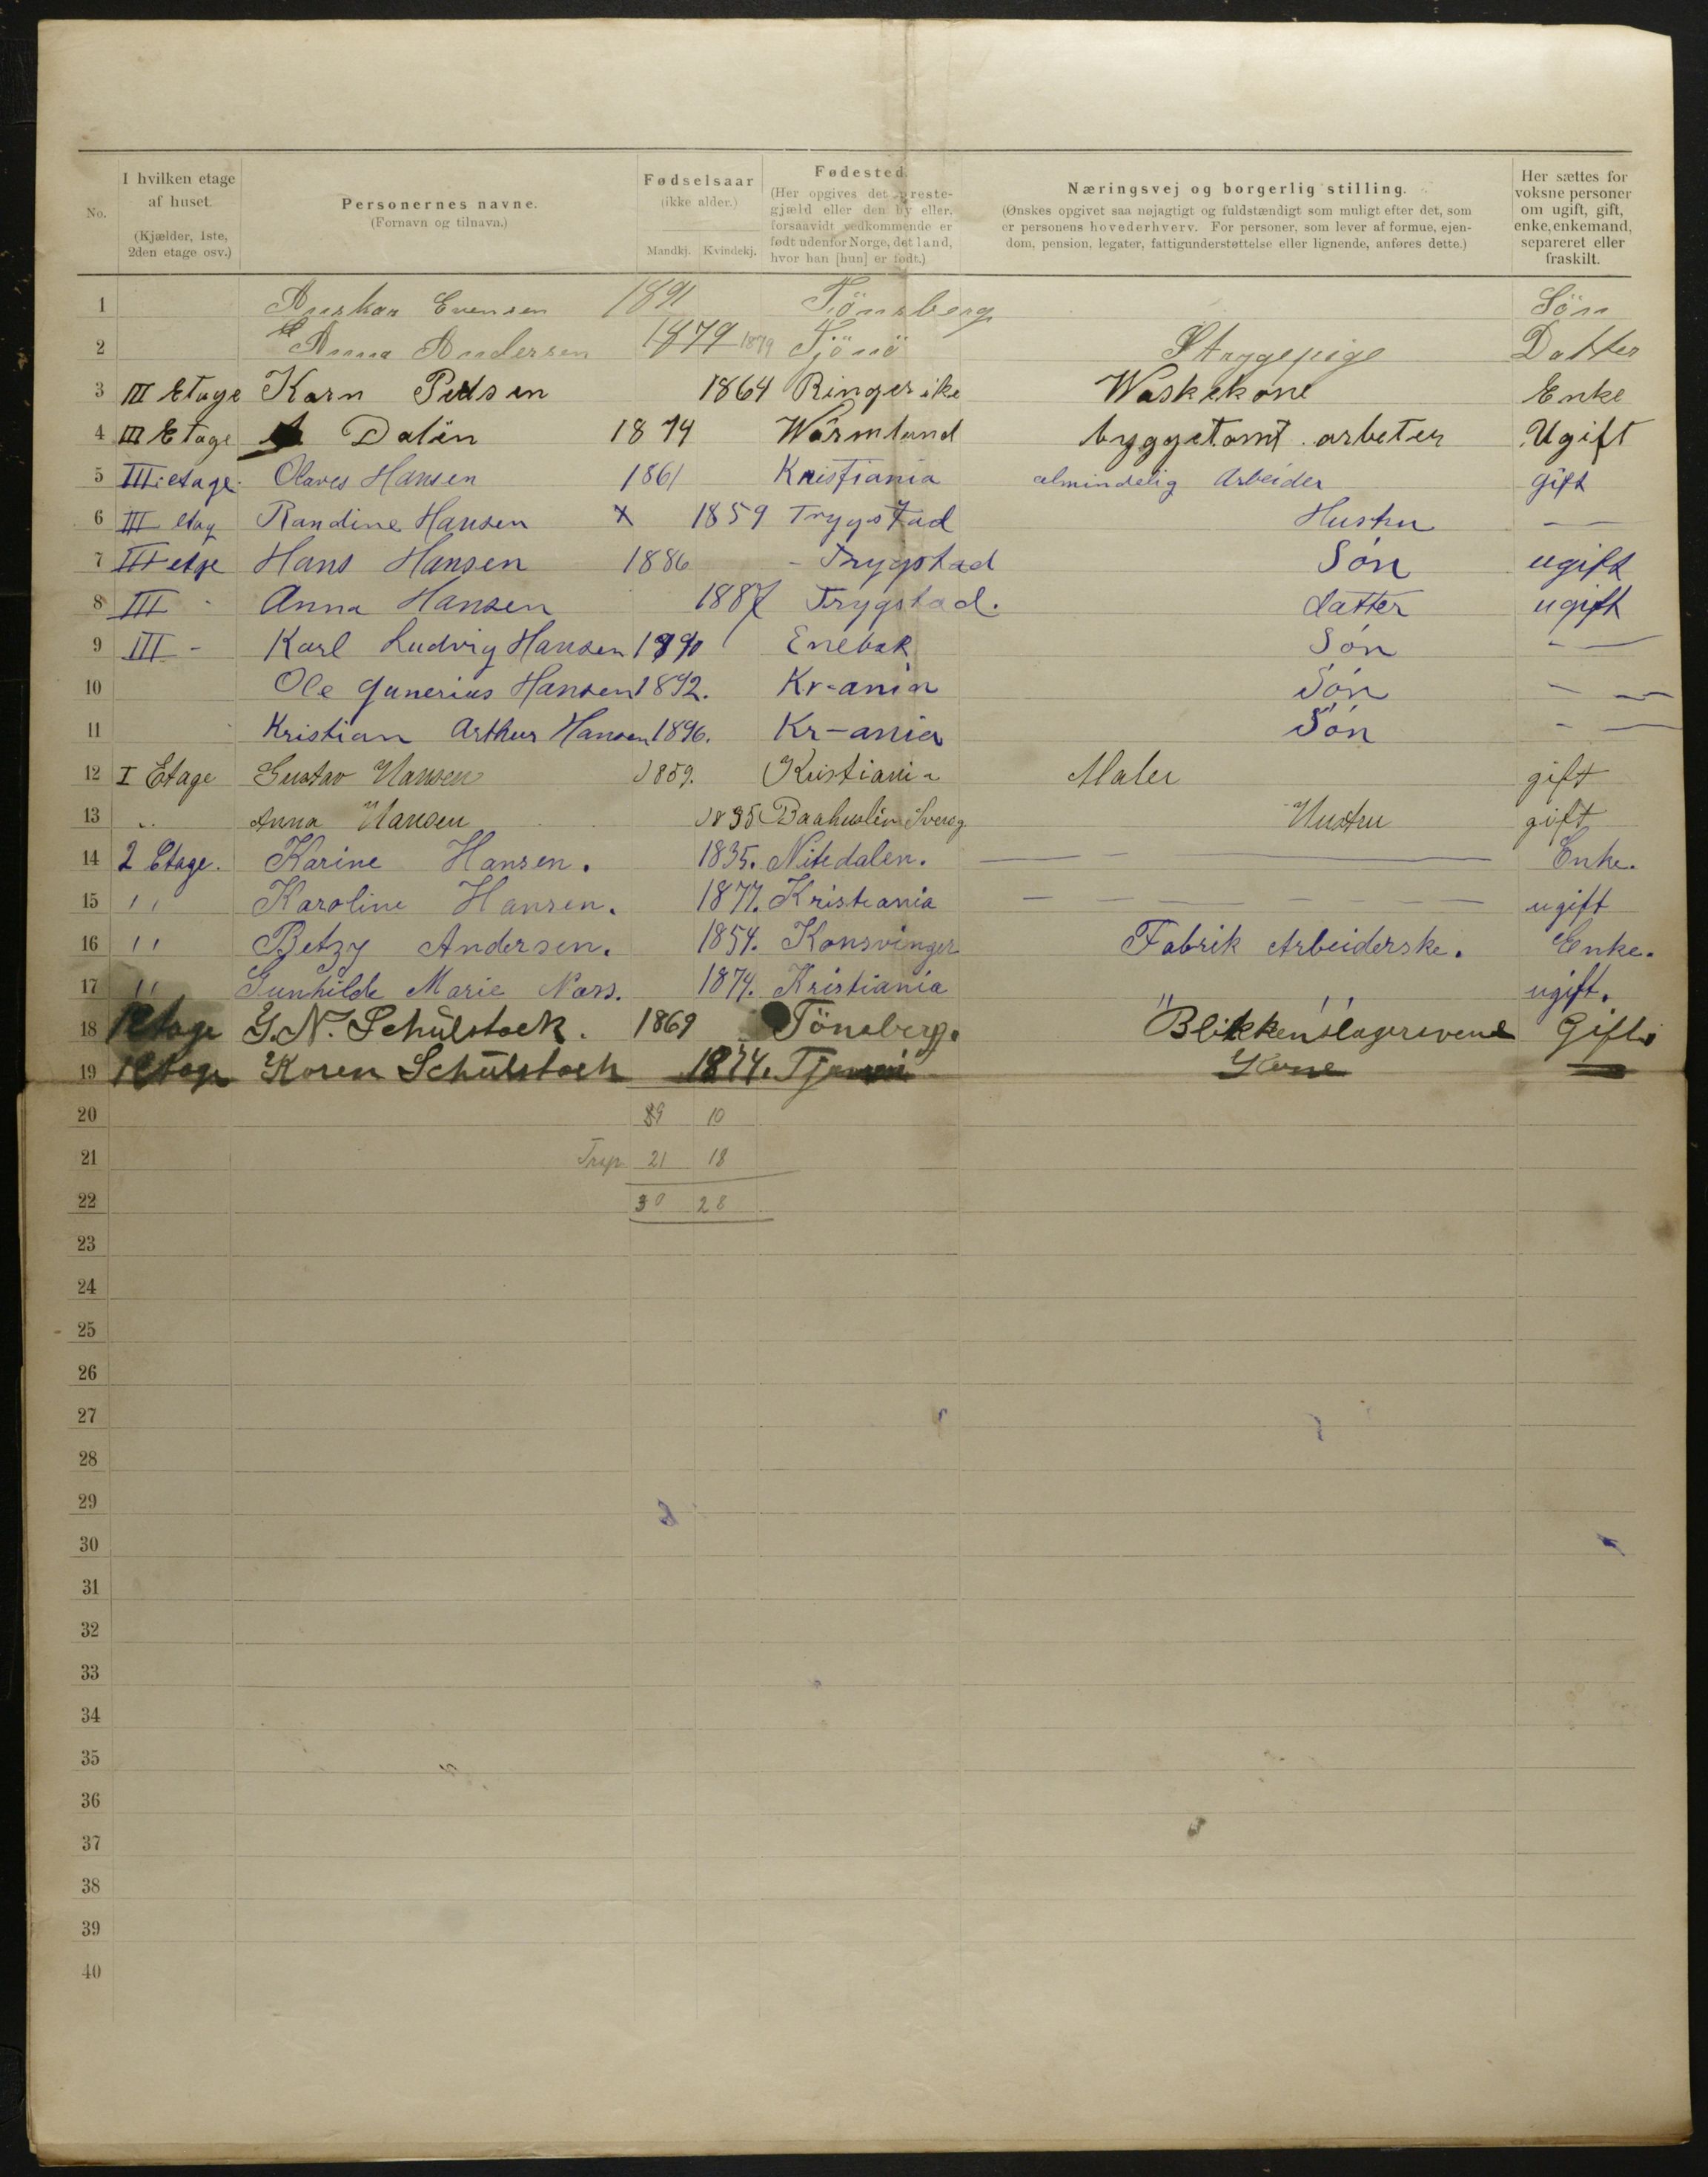 No.
I hvilken etage
af huset.
(Kjælder, 1ste,
2den etage osv.)
Personernes navne.
(Fornavn og tilnavn.)
Fødselsaar
(ikke alder.)
Mandkj. Kvindekj.
Fødested.
(Her opgives det preste-
gjæld eller den by eller,
forsaavidt vedkommende er
født udenfor Norge, det land,
hvor han [hun] er født.)
Næringsvej og borgerlig stilling.
(Ønskes opgivet saa nøjagtigt og fuldstændigt som muligt efter det, som
er personens hovederhverv. For personer, som lever af formue, ejen-
dom, pension, legater, fattigunderstøttelse eller lignende, anføres dette.)
Her sættes for
voksne personer
om ugift, gift,
enke, enkemand,
separeret eller
fraskilt.
1 Anskar Evensen 1891 Tönsberg Sön
2 Anna Andersen 1879 1879 Tjömö Strygepige Datter
3 III Etage Karn 1864 Ringerike Waskekone Enke
4 III Etage Dalën 1874 Wärmland byggetomt arbeter Ugift
5 III etage. Olaves Hansen 1861 Kristiania almindelig Arbeider gift
6 III etag Randine Hansen x 1859 Trygstad Hustru — —
7 III etge Hans Hansen 1886 - Trygstad Són ugift
8 III - Anna Hansen 1887 Trygstad. datter ugift
9 III - Karl Ludvig Hansen 1890 Enebak Són - —
10 Ole Gunerius Hansen 1892. Kr-ania Són - —
11 Kristian Arthur Hansen 1896. Kr-ania Són - —
12 I Etage Gustav Hansen 1859. Kristiania Maler gift
13 " Anna Hansen 1835 Baahuslin Sverig Hustru gift
14 2 Etage. Karine Hansen. 1835. Nitedalen. — - — Enke.
15 " Karoline Hansen. 1877. Kristiania — — — — — — ugift
16 " Betzy Andersen. 1854. Konsvinger Fabrik Arbeiderske. Enke.
17 " Gunhilde Marie Næss. 1874. Kristiania " " ugift.
18 1 Etage G. N. Schülstock. 1869 Tönsberg. Blikkenslagersvend Gift.
19 1 Etage Karen Schülstock 1874. Kone —
20 89 10
21 21 18
22 30 28
23
24
25
26
27
28
29
30
31
32
33
34
35
36
37
38
39
40